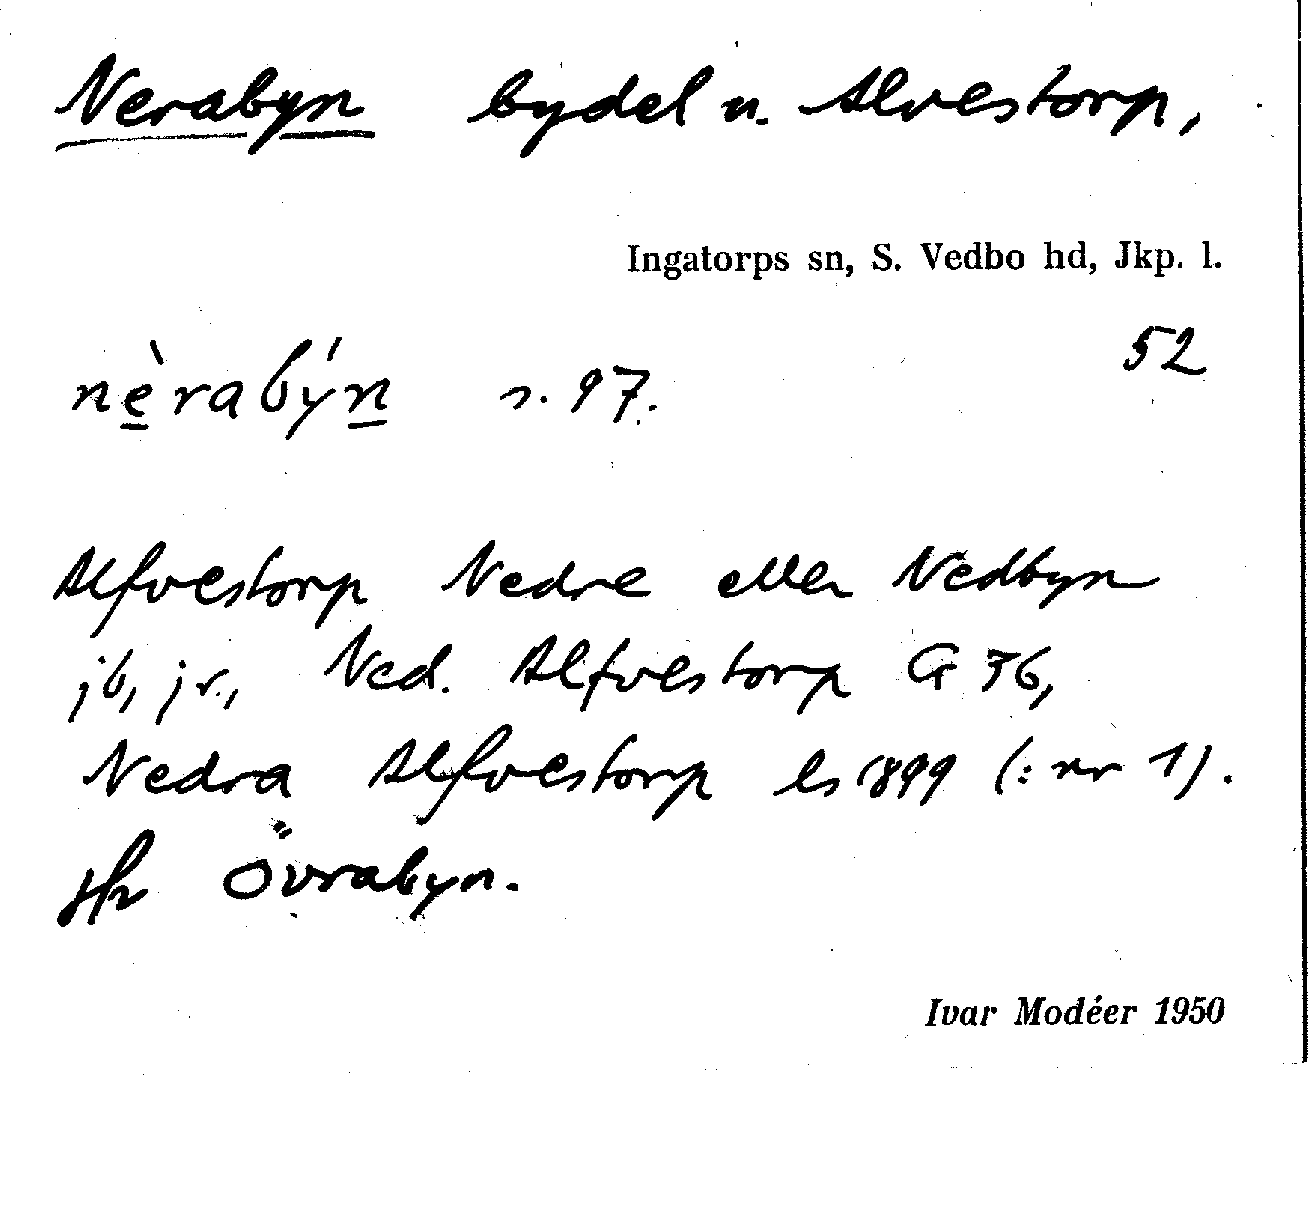 Nerabyn bydel u. Alvestorp,
Ingatorps sn, S. Vedbo hd, Jkp. l.
52
nèrabýn s. 97.
Alfvestorp Nedre eller Nedbyn
jb, jr., Ned. Alfvestorp G 36,
Nedra Alfvestorp ls 1899 (: nr 1).
Jfr Övrabyn.
Ivar Modéer 1950